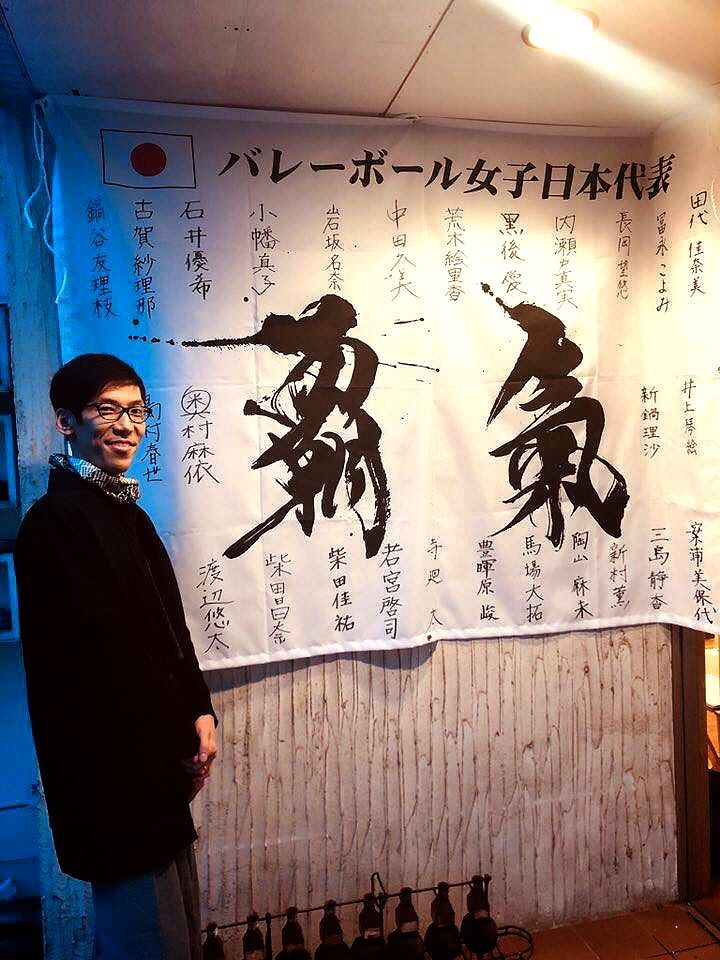 バレーボール女子日本代表
田代 佳奈美
冨永 こよみ
長岡 望悠
内瀬戸真実
黒後 愛
荒木絵里香
中田久美
岩坂名奈
小幡真子
石井優希
古賀紗理那
鍋谷友理枝
覇氣
井上琴絵
新鍋理沙
奥村麻依
村春世
寮浦美保代
三島静香
新村薫
陶山麻未
馬場大拓
豊暉原 峻
寺廻 太
若宮啓司
柴田佳祐
柴田昌奈
渡辺悠太